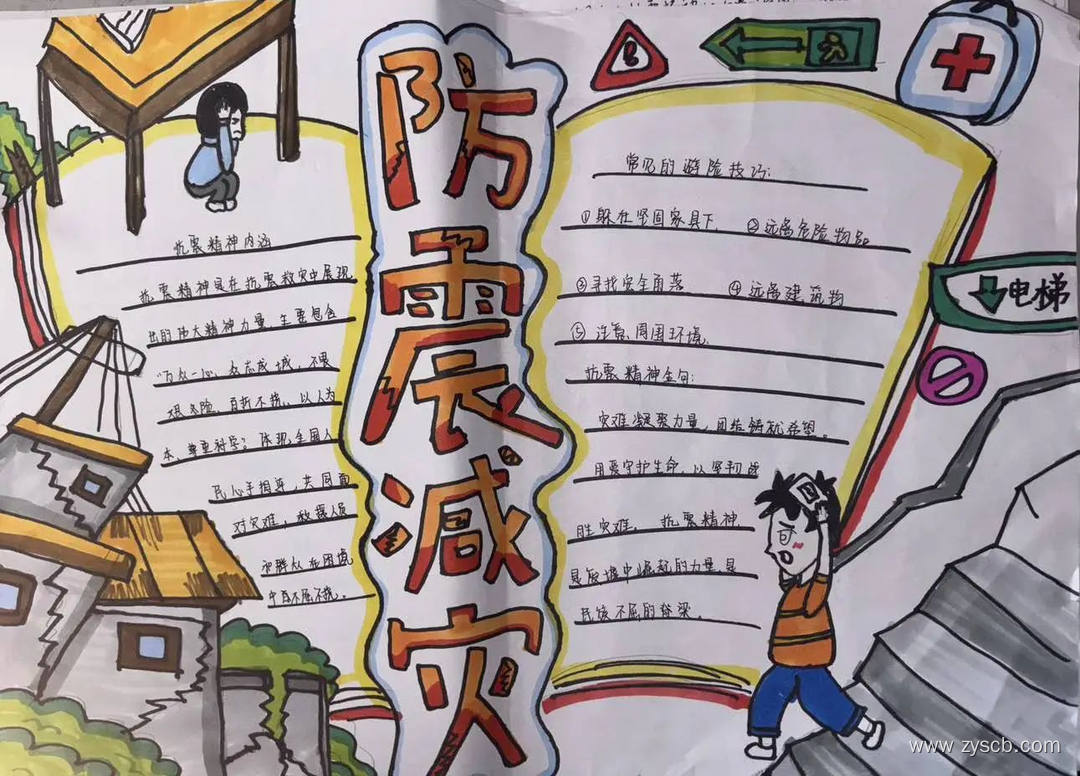 防震减灾
抗震精神内涵
抗震精神是在抗震救灾中展现
出的伟大精神力量,主要包含
"万众一心、众志成城,不畏
艰险、百折不挠,以人为
本、尊重科学",体现全国人
民心手相连,共同面
对灾难,救援人员
和群众在困境
中百不屈不挠。
常见的避险技巧:
①躲在坚固家具下、 ②远离危险物品
③寻找安全角落 ④远离建筑物
⑤注意周围环境。
抗震精神金句:
灾难凝聚力量,团结铸就希望。
用爱守护生命,以坚韧战
胜灾难。 抗震精神
是废墟中崛起的力量,是
民族不屈的脊梁。
电梯
www.zyscb.com